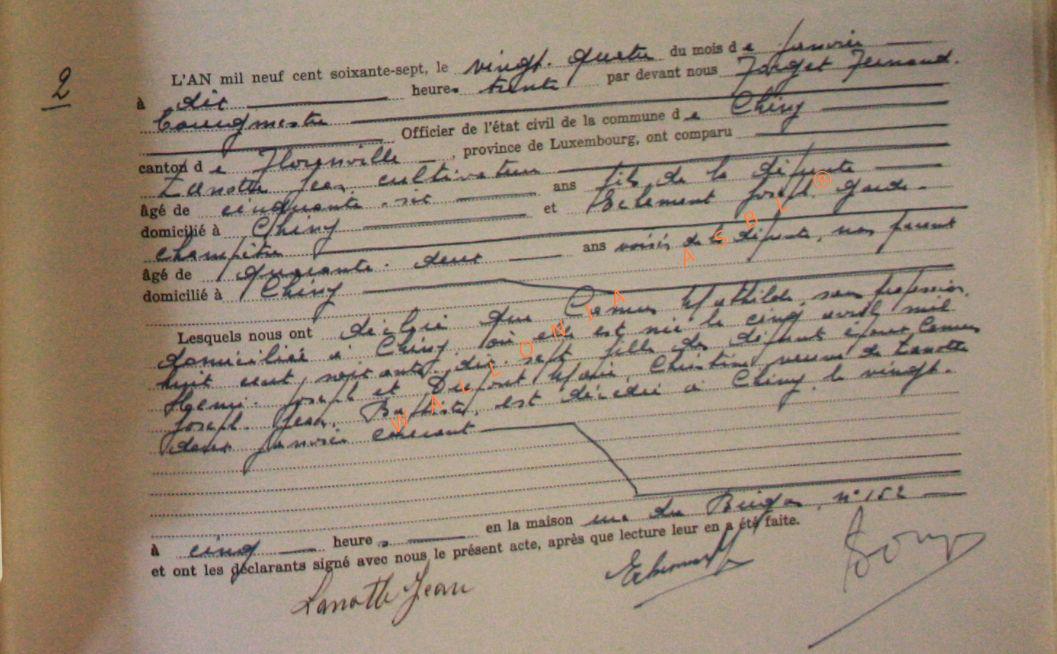 2
L'AN mil neuf cent soixante-sept, le vingt-quatre du mois de janvier
à dix heures trente par devant nous Forget Fernand.
bourgmestre
Officier de l'état civil de la commune de Chiny
canton de Florenville, province de Luxembourg, ont comparu
Lanotte Jean cultivateur
âgé de cinquante-six ans fils de la défunte
domicilié à Chiny et Joseph garde-
champêtre
âgé de quarante-deux ans voisin de la défunte, non parent
domicilié à Chiny
Lesquels nous ont déclaré que Camus Mathilde, sans profession,
domiciliée à Chiny, où elle est née le cinq avril mil
huit cent septante-dix-sept fille des défunts époux Camus
Henri-Joseph et Dupont Marie Christine veuve de Lanotte
Joseph Jean-Baptiste, est décédée à Chiny le vingt-
deux janvier courant
à cinq heures en la maison rue du n° 152
et ont les déclarants signé avec nous le présent acte, après que lecture leur en a été faite.
Lanotte Jean
WALLONIA ASBL ®